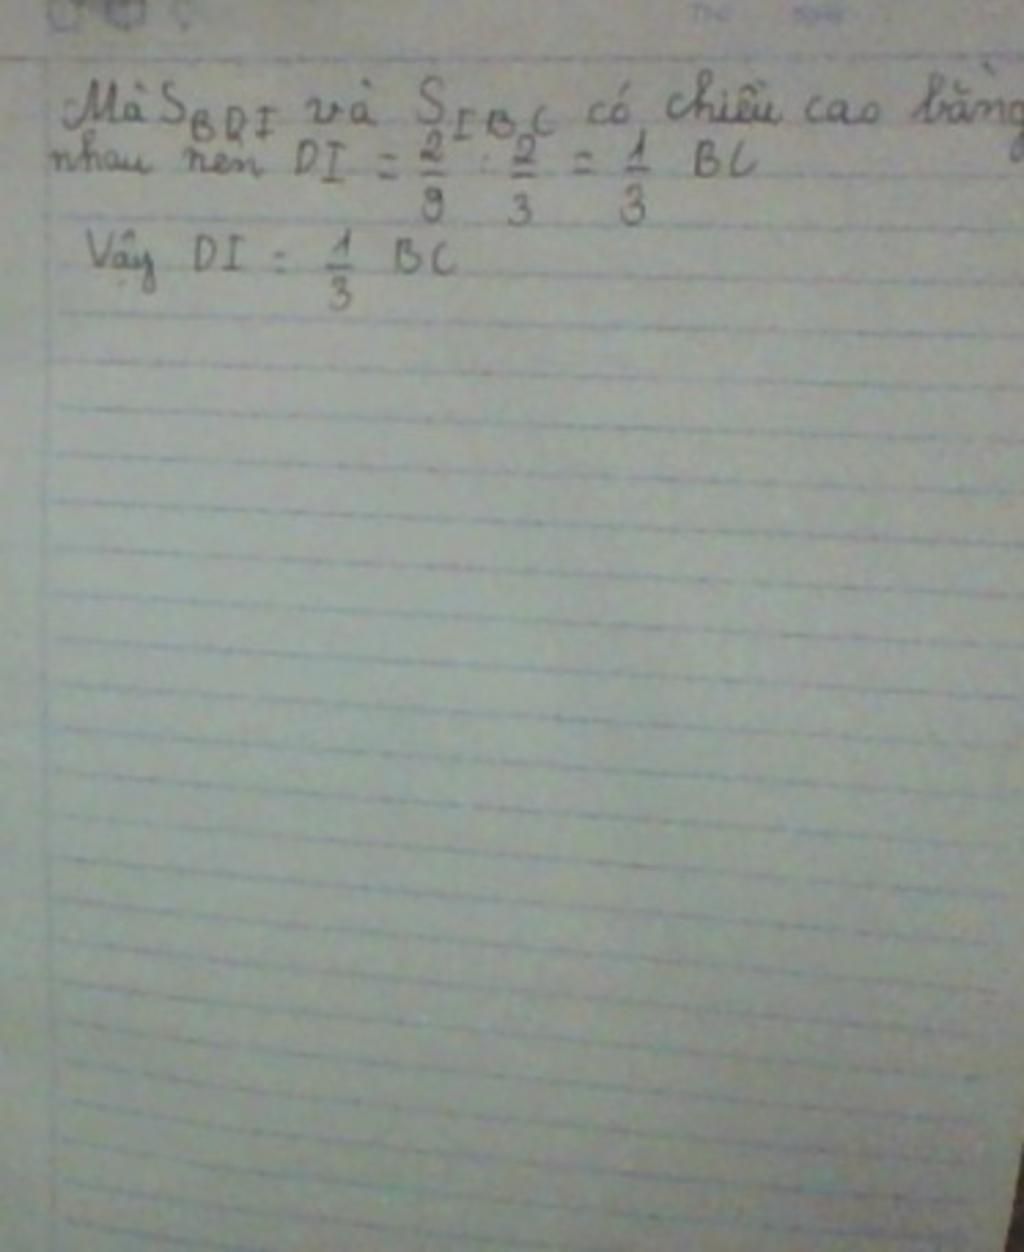 Mà S BDI và S IBC có chiều cao bằng
nhau nen DI = 2/9 : 2/3 = 1/3 BC
Vậy DI = 1/3 BC